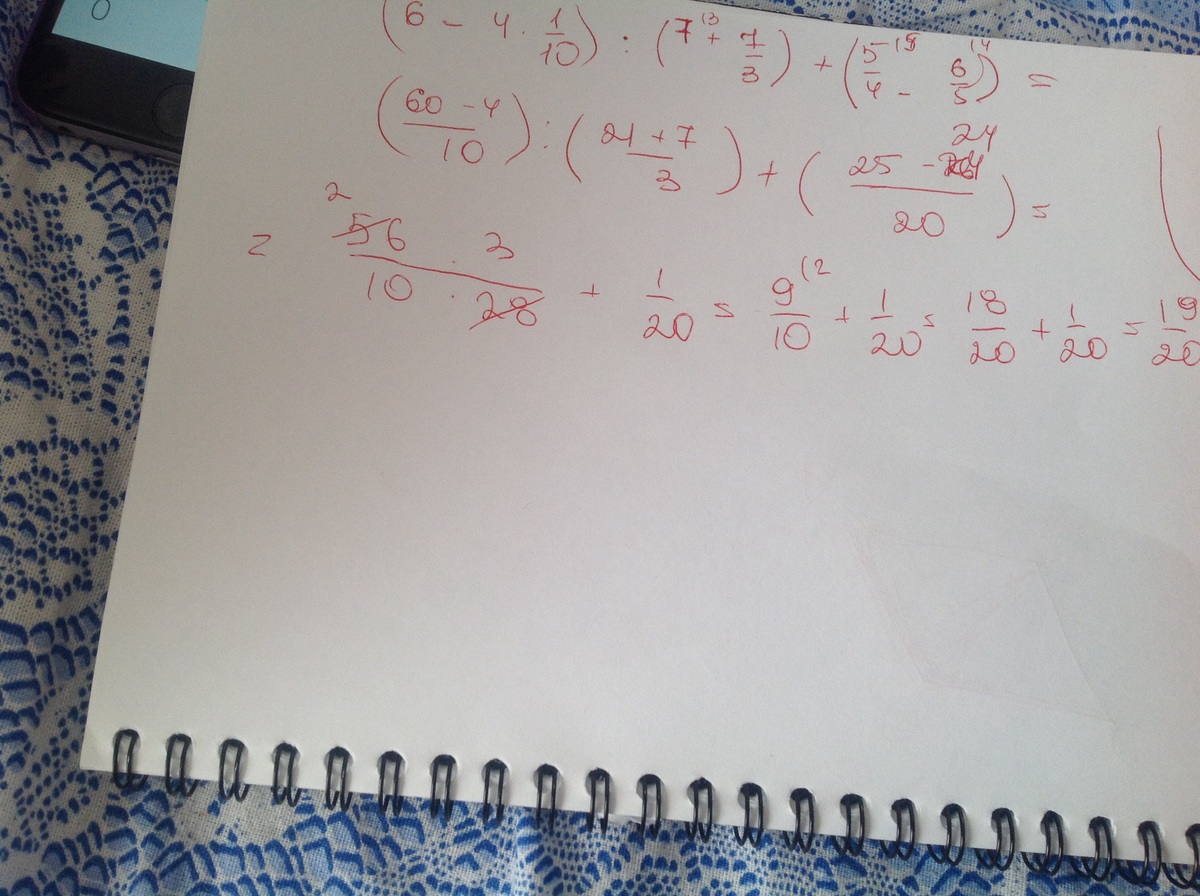 0
(6 - 4 · 1/10) : (7 + 7/3) + (5/4 - 6/5) =
((60 - 4)/10) : ((21 + 7)/3) + ((25 - 24)/20) =
= (56 · 3)/(10 · 28) + 1/20 = 9/10 + 1/20 = 18/20 + 1/20 = 19/20